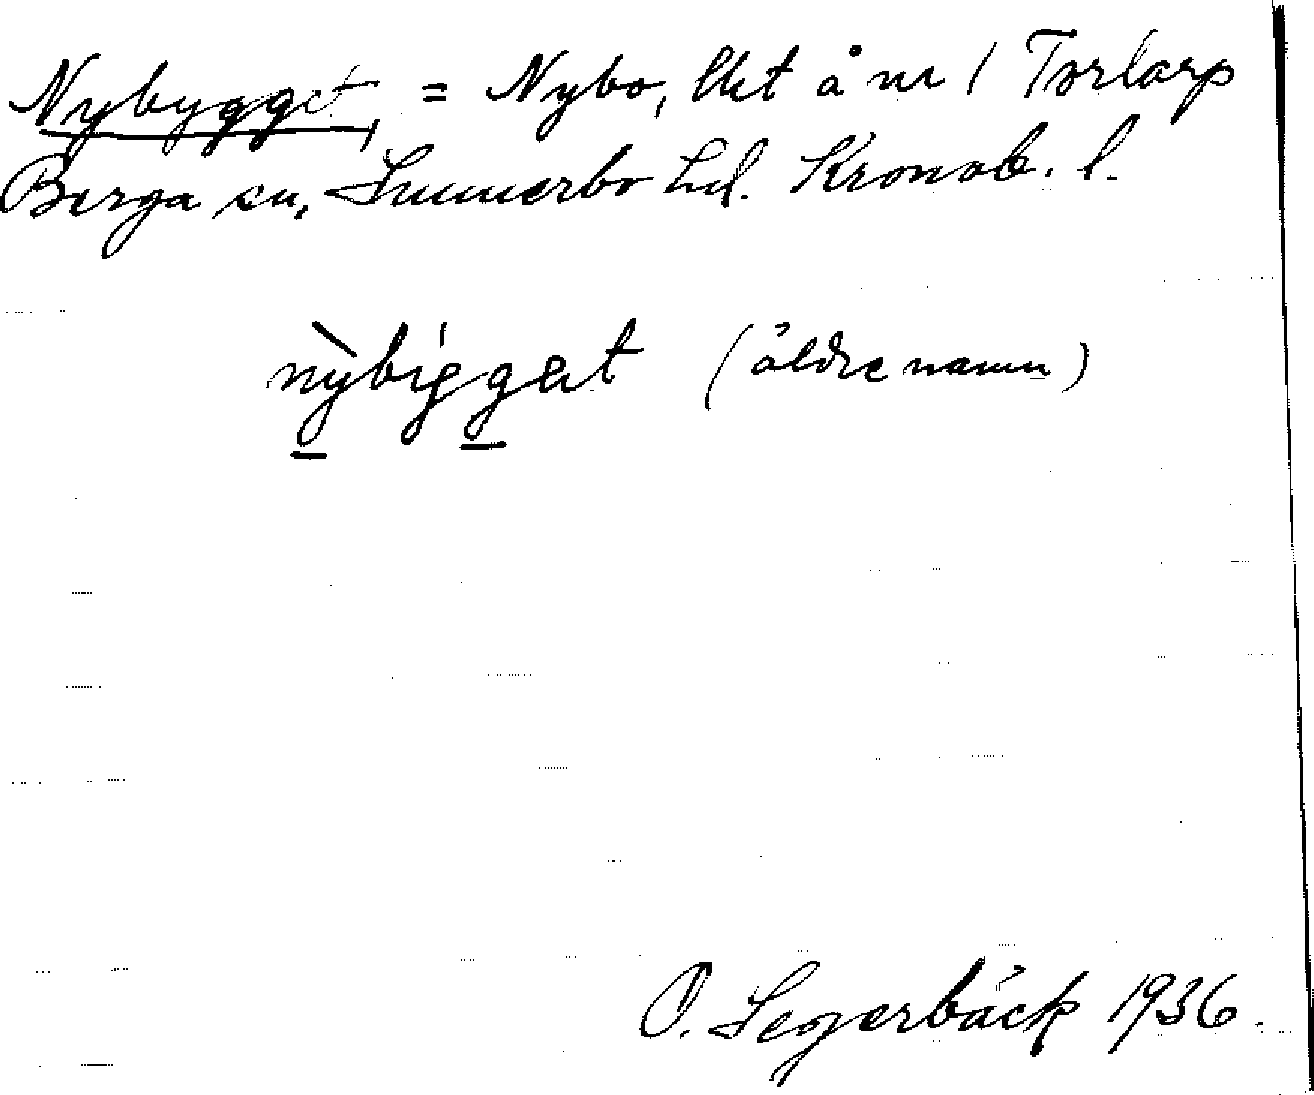 Nybygget, = Nybo, lht å nr 1 Torlarp
Berga sn, Sunnerbo hd. Kronob. l.
nỳbiggət (äldre namn)
O. Segerbäck 1936.